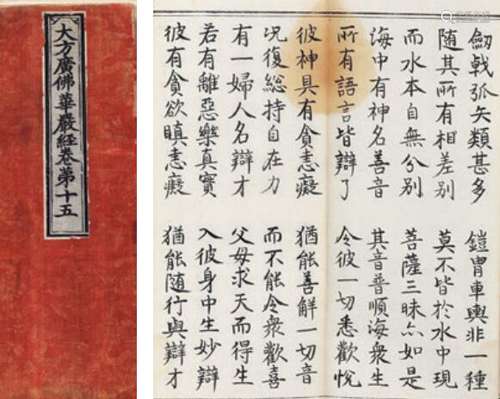 大方廣佛華嚴經卷第十五
劒戟弧矢類甚多 鎧冑車輿非一種
隨其所有相差別 莫不皆於水中現
而水本自無分別 菩薩三昧亦如是
海中有神名善音 其音普順海衆生
所有語言皆辯了 令彼一切悉歡悅
彼神具有貪恚癡 猶能善解一切音
況復總持自在力 而不能令衆歡喜
有一婦人名辯才 父母求天而得生
若有離惡樂真實 入彼身中生妙辯
彼有貪欲瞋恚癡 猶能隨行與辯才